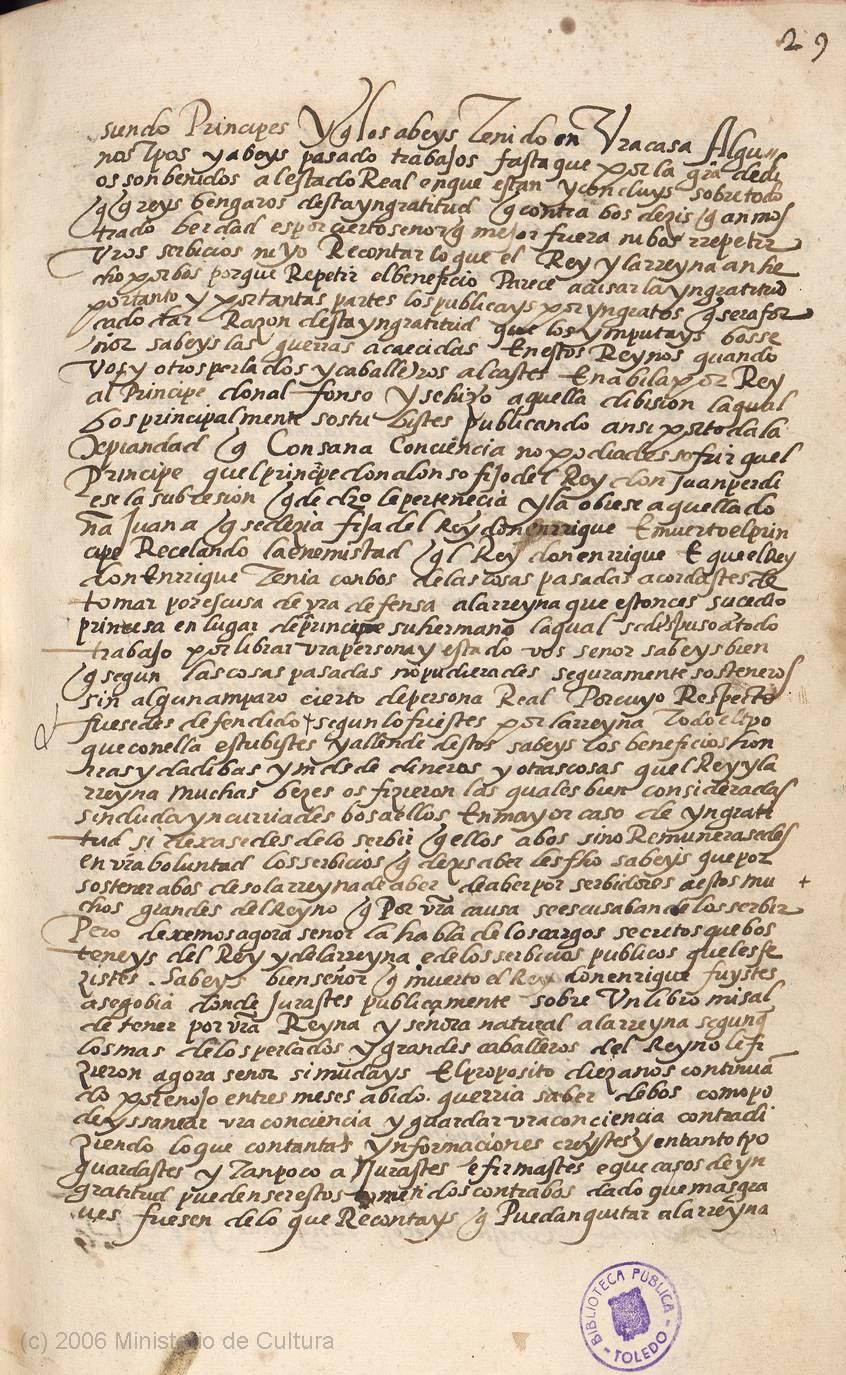 29
siendo Principes y q los abeys Tenido en Vra casa Algu
nos Tpos y abeys pasado trabajos fasta que por la gra de di
os son benidos al estado Real en que estan y concluys sobre todo
q q reys bengaros desta yngratitud q contra bos dezis q an mos
trado berdad es por cierto senor q mejor fuera ni bos rrepetir
Vros serbicios ni yo Recontar lo que el Rey y la rreyna an he
cho por bos porque Repetir el beneficio Parece acusar la yngratitud
por tanto y por tantas partes los publicays por yngratos q sera for
cado dar Razon desta yngratitud que los ymputays bos se
ñor sabeys las guerras acaecidas En estos Reynos quando
Vos y otros perlados y caballeros alcastes En abila por Rey
al Principe don al fonso y se hizo aquella dibision la qual
bos principalmente sostubistes publicando ansi por toda la
xpiandad q Con sana Conciencia no podiades sofrir quel
Principe quel principe don alonso fijo del Rey don Juan perdi
ese la subcesion q de dro le pertenecia y la obiese aquella do
ña Juana q se dezia fija del Rey don enrrique E muerto el prin
cipe Recelando la enemistad q l Rey don enrrique E que el Rey
don Enrrique Tenia con bos de las cosas pasadas acordastes de
tomar por escusa de vra defensa a la rreyna que estonces sucedio
princesa en lugar de principe su hermano la qual se dispuso a todo
trabajo por librar vra persona y estado vos senor sabeys bien
q segun las cosas pasadas no pudierades seguramente sosteneros
sin algun amparo cierto de persona Real Por cuyo Respecto
fuesedes defendido segun lo fuestes por la rreyna Todo el tpo
que con ella estubistes y allende destos sabeys los beneficios hon
rras y dadibas y mds de dineros y otras cosas quel Rey y la
rreyna muchas bezes os fizieron las quales bien consideradas
sin duda yncurriades bos a ellos En mayor caso de yngrati
tud si dexasedes de lo serbir q ellos a bos si no Remunerasedes
en vra boluntad los serbicios q dexs aber les fho sabeys que por
sostener a bos deso la rreyna de aber de aber por serbidores a estos mu
chos grandes del Reyno q Por vra causa se escusaban de los serbir
Pero dexemos agora senor la habla de los cargos secretos que bos
teneys del Rey y de la rreyna e de los serbicios publicos que les fe
zistes Sabeys bien señor q muerto el Rey don enrique fuystes
a segobia donde Jurastes publicamente sobre Un libro misal
de tener por vra Reyna y señora natural a la rreyna segun q
los mas de los perlados y grandes caballeros del Reyno le fi
zieron agora senor si mudays El proposito diez anos continua
do por enojo en tres meses abido querria saber de bos como po
deys sanear vra conciencia y guardar vra conciencia contradi
ziendo lo que con tantas ynformaciones creystes y en tanto tpo
guardastes y Tanpoco a Jurastes e firmastes e que casos de yn
gratitud pueden ser estos cometidos contra bos dado que mas gra
ues fuesen de lo que Recontays q Puedan quitar a la rreyna
BIBLIOTECA PÚBLICA
- TOLEDO -
(c) 2006 Ministerio de Cultura